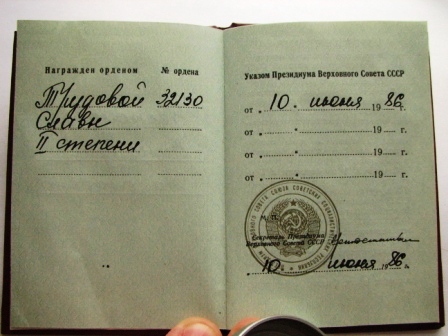 Награжден орденом № ордена
Трудовой 32130
Славы
II степени
Указом Президиума Верховного Совета СССР
от 10. июня 19 86 г.
от . 19 г.
от . 19 г.
от . 19 г.
М. П.
Секретарь Президиума
Верховного Совета СССР
10. июня 1986 г.